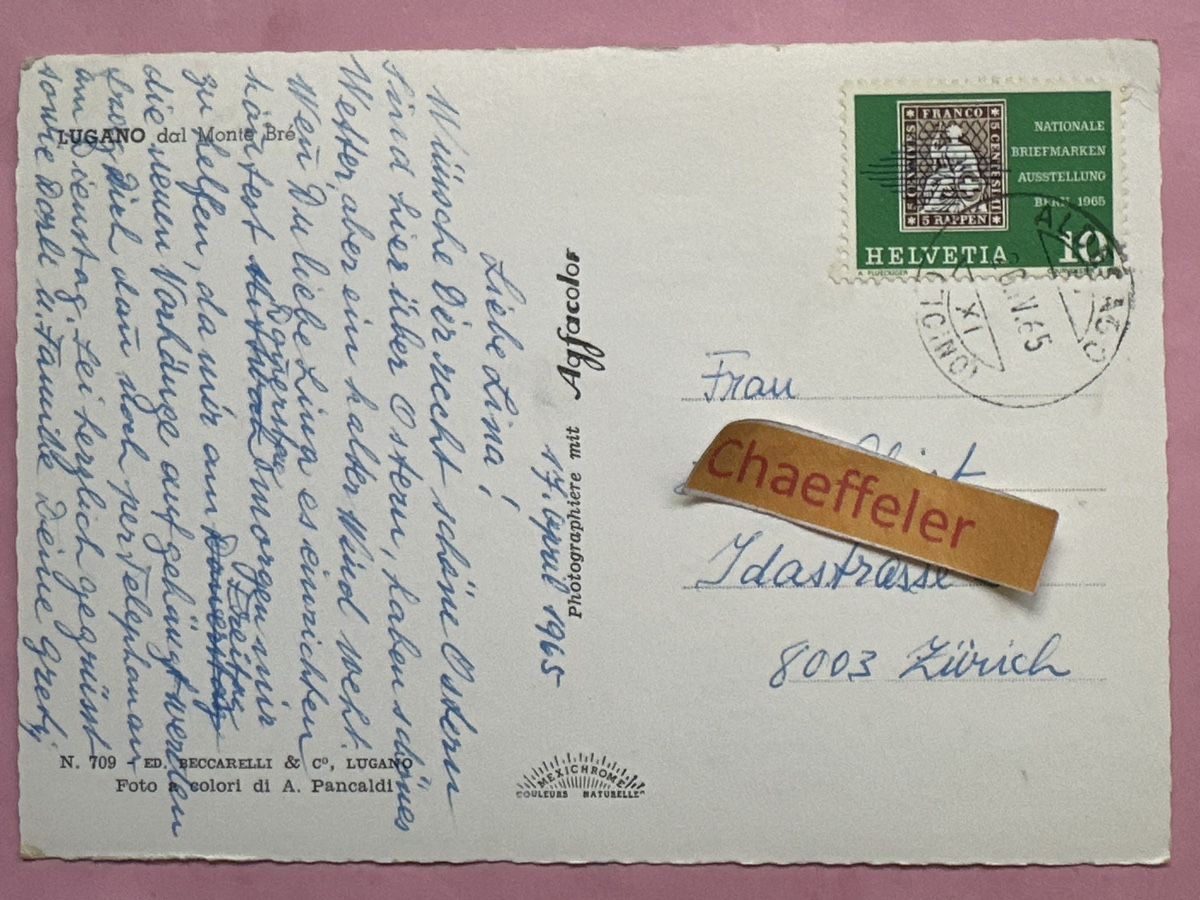 LUGANO dal Monte Bré.
17. April 1965
Liebe Lina!
Wünsche Dir recht schöne Ostern
Sind hier über Ostern, haben schönes
Wetter aber ein kalter Wind weht.
Wen̄ Du liebe Lina es einrichten
kön̄test Mittwoch Don̄erstag morgen mir
zu helfen, da wir am Donnerstag Freitag
die neuen Vorhänge aufgehängt werden
Dich dan̄ noch per Telephon an
am Dienstag. Sei herzlich gegrüsst
sowie Dorli u. Familie Deine Grety.
N. 709 - ED. BECCARELLI & Cº, LUGANO
Foto a colori di A. Pancaldi
Photographiere mit Agfacolor
MEXICHROME
COULEURS NATURELLES
FRANCO
5 CENTESIMI
5 RAPPEN
NATIONALE
BRIEFMARKEN
AUSSTELLUNG
BERN 1965
HELVETIA 10
A. FLUECKIGER
COURVOISIER
XI
IV.65
(TICINO)
Frau
Chaeffeler
Idastrasse
8003 Zürich